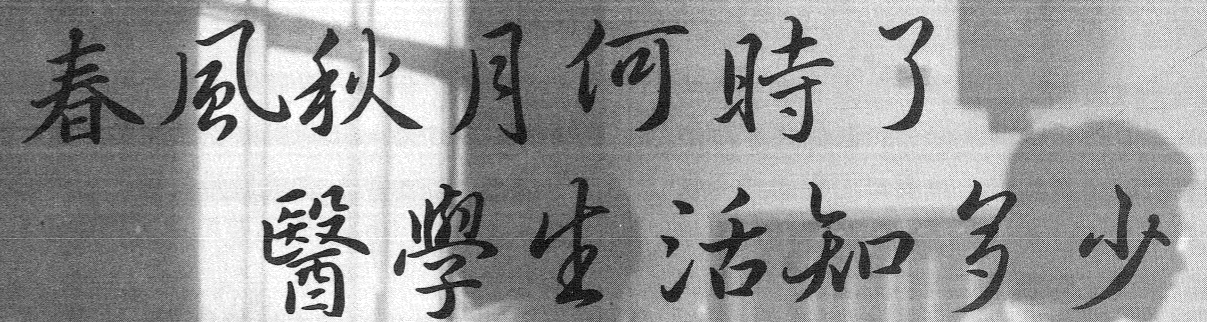 春風秋月何時了
醫學生活知多少